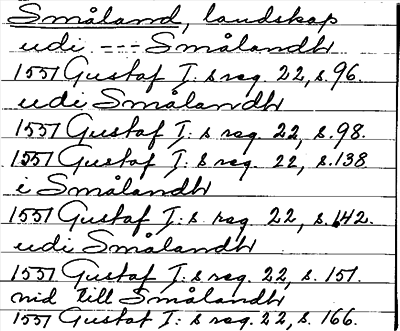 Småland, landskap
udi --- Smålandh
1557 Gustaf I: s reg. 22, s. 96.
udi Smålandh
1557 Gustaf I: s reg. 22, s. 98.
1557 Gustaf I: s reg. 22, s. 138
i Smålandh
1557 Gustaf I: s reg. 22, s. 142.
udi Smålandh
1557 Gustaf I: s reg. 22, s. 151.
nid till Smålandh
1557 Gustaf I: s reg. 22, s. 166.